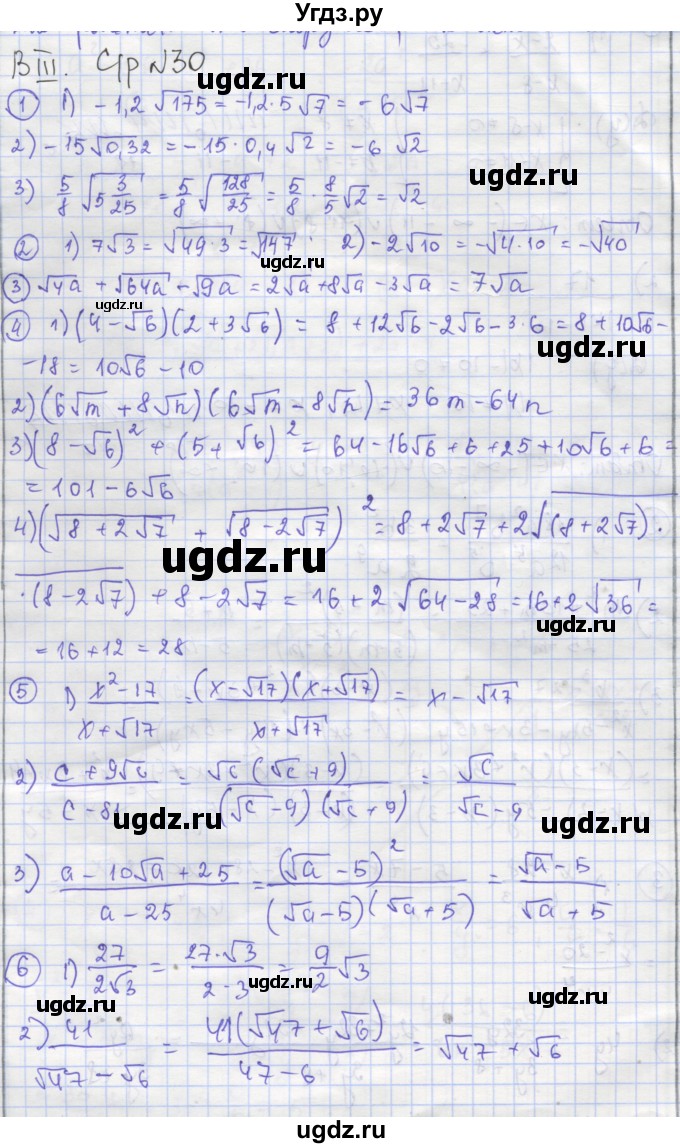 Угдз.ру
В III. Ср №30
ugdz.ru ugdz.ru
① 1) -1,2√175 = -1,2·5√7 = -6√7
2) -15√0,32 = -15·0,4√2 = -6√2
3) 5/8 √(5 3/25) = 5/8 √(128/25) = 5/8 · 8/5 √2 = √2
② 1) 7√3 = √(49·3) = √147 2) -2√10 = -√(4·10) = -√40
ugdz.ru
③ √4a + √64a - √9a = 2√a + 8√a - 3√a = 7√a
④ 1) (4-√6)(2+3√6) = 8+12√6-2√6-3·6 = 8+10√6-
-18 = 10√6-10
ugdz.ru
2) (6√m + 8√n)(6√m - 8√n) = 36m - 64n
3) (8-√6)² + (5+√6)² = 64-16√6+6+25+10√6+6 =
= 101-6√6
ugdz.ru
4) (√(8+2√7) + √(8-2√7))² = 8+2√7+2√((8+2√7)·
ugdz.ru
·(8-2√7)) + 8-2√7 = 16+2√(64-28) = 16+2√36 =
= 16+12 = 28
ugdz.ru
⑤ 1) (x²-17)/(x+√17) = (x-√17)(x+√17)/(x+√17) = x-√17
2) (c+9√c)/(c-81) = √c(√c+9)/((√c-9)(√c+9)) = √c/(√c-9)
ugdz.ru ugdz.ru
3) (a-10√a+25)/(a-25) = (√a-5)²/((√a-5)(√a+5)) = (√a-5)/(√a+5)
⑥ 1) 27/(2√3) = 27·√3/(2·3) = 9/2 √3
ugdz.ru ugdz.ru
2) 41/(√47-√6) = 41(√47+√6)/(47-6) = √47+√6
ugdz.ru